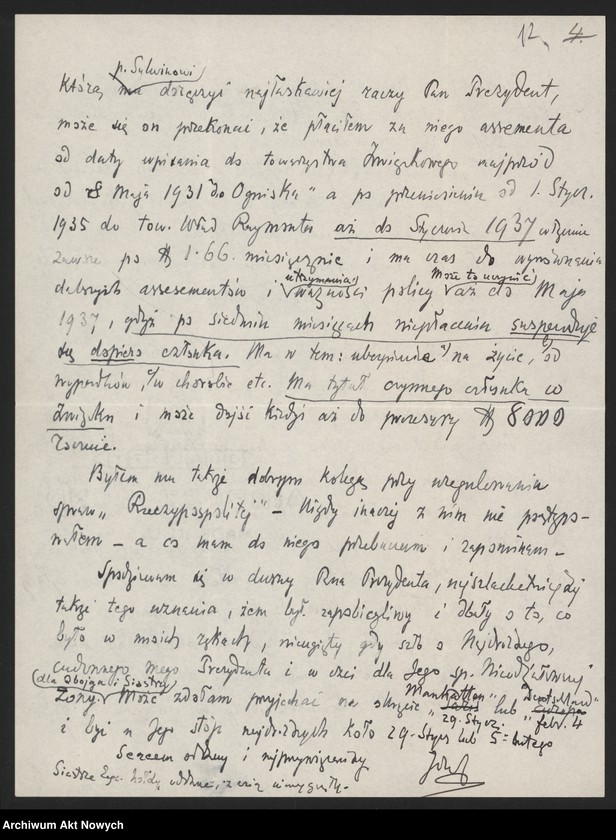 12. 4.
p. Sylwinowi
Którą ma doręczyć najłaskawiej raczy Pan Prezydent,
może się on przekonać, że płaciłem za niego assementa
od daty wpisania do towarzystwa Związkowego najprzód
od 8 Maja 1931 "do Ogniska" a po przeniesieniu od 1. Stycz.
1935 do tow. Wład Reymonta aż do Stycznia 1937 włącznie
zawsze po $ 1.66. miesięcznie i ma czas do wyrównania
utrzymania Może to uczynić
dalszych assesementów i ważności policy aż do Maja
1937, gdyż po siedmiu miesiącach niepłacenia suspenduje
się dopiero członka. Ma w tem: ubezpieczenie na życie, od
wypadków, w chorobie etc. Ma tytuł czynnego członka
Związku i może dojść kiedyś aż do prezesury $ 8000
rocznie.
Byłem mu także dobrym kolegą przy uregulowaniu
spraw "Rzeczypospolitej" – Nigdy inaczej z nim nie postępo-
wałem – a co mam do niego przebaczam i zapominam –
Spodziewam się w duszy Pana Prezydenta, najszlachetniejszej
także tego uznania, żem był zapobiegliwy i dbały o to, co
było w moich rękach, nieugięty gdy szło o Najdroższego,
cudownego mego Prezydenta i w czci dla Jego śp.
dla Obojga i Siostry
Żony. Może zdołam przyjechać na okręcie "Manhattan" lub "Deutschland"
29. Stycz. febr. 4
i być u Jego stóp najdroższych koło 29. Stycz lub 5. lutego
Sercem oddany i najprzywiązańszy
Siostrze